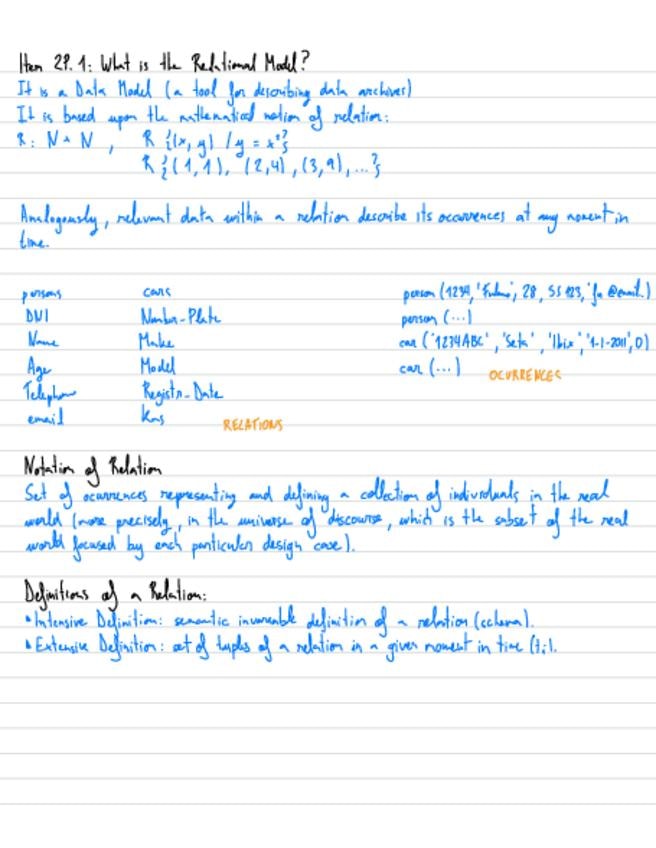 Item 2P.1: What is the Relational Model?
It is a Data Model (a tool for describing data archives)
It is based upon the mathematical notion of relation:
R: N × N , R {(x, y) / y = x²}
R {(1,1), (2,4), (3,9), ...}
Analogously, relevant data within a relation describe its occurrences at any moment in
time.
persons cars person (1234, 'Fulano', 28, SS 123, 'fu @email.)
DNI Number-Plate person (...)
Name Make car ('1234ABC', 'Seta', 'Ibix', '1-1-2011', 0)
Age Model car (...) OCURRENCES
Telephone Registr-Date
email Kms RELATIONS
Notation of Relation
Set of ocurrences representing and defining a collection of individuals in the real
world (more precisely, in the universe of discourse, which is the subset of the real
world focused by each particular design case).
Definitions of a Relation:
• Intensive Definition: semantic invariable definition of a relation (schema).
• Extensive Definition: set of tuples of a relation in a given moment in time (ti).